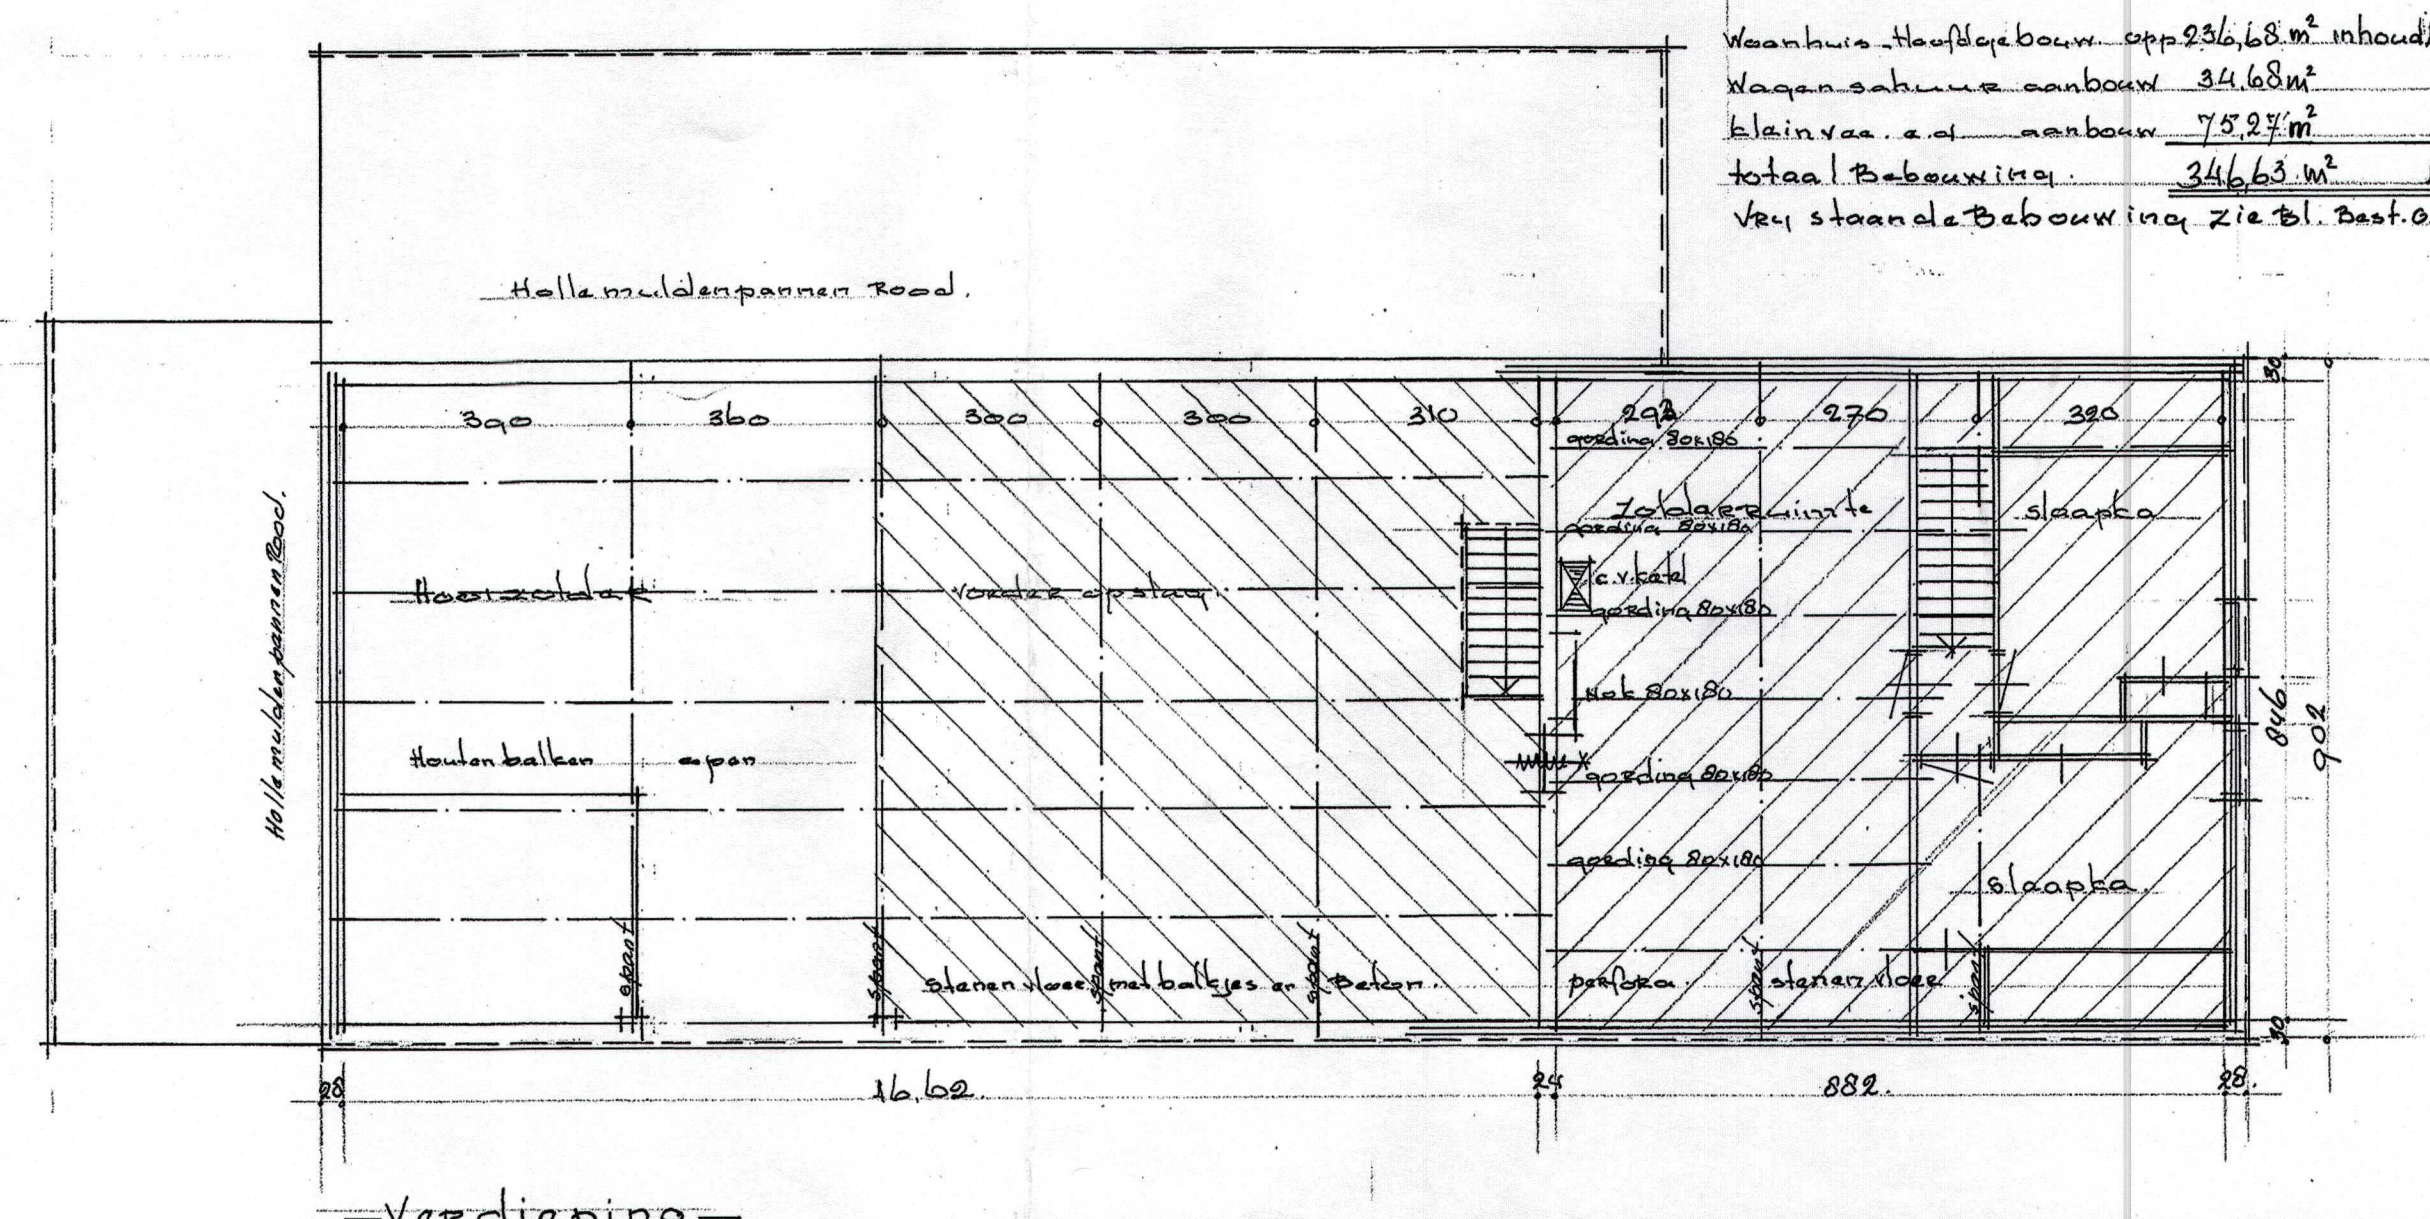 Woonhuis-Hoofdgebouw opp 236,68 m² inhoud
Wagenschuur aanbouw 34,68 m²
kleinvee e.d. aanbouw 75,27 m²
totaal Bebouwing. 346,63 m²
Vrij staande Bebouwing zie Bl. Best.
Holle muldenpannen Rood.
30
390 360 300 300 310 293 270 320
gording 80x180
Zolder Ruimte
slaapka
gording 80x180
Holle muldenpannen Rood.
c.v. ketel
Hooizolder
voeder opslag.
gording 80x180
Nok 80x180
846
902
Houten balken open
gording 80x180
gording 80x180
slaapka.
spant
spant
spant
spant
spant
spant
stenen vloer met balkjes en Beton.
perfora.
stenen vloer
30
28
16,62.
24
882.
28.
—Verdieping—